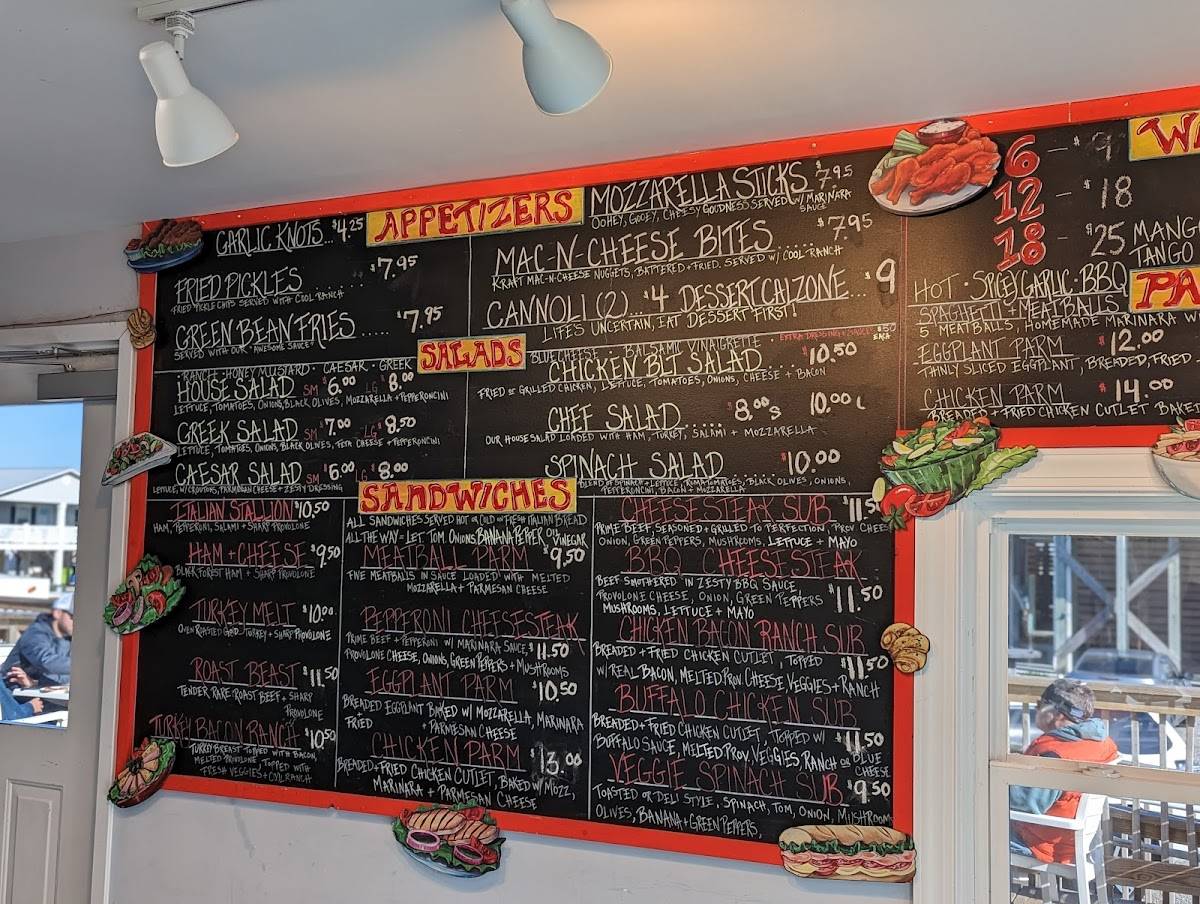 APPETIZERS
GARLIC KNOTS... $4.25
FRIED PICKLES ....... $7.95
FRIED PICKLE CHIPS SERVED WITH COOL RANCH
GREEN BEAN FRIES..... $7.95
SERVED WITH OUR "AWESOME SAUCE"
MOZZARELLA STICKS $7.95
OOHEY, GOOEY, CHEESY GOODNESS SERVED W/ MARINARA
SAUCE
MAC-N-CHEESE BITES..... $7.95
KRAFT MAC-N-CHEESE NUGGETS, BATTERED + FRIED. SERVED W/ COOL RANCH
CANNOLI (2)... $4 DESSERT CALZONE... $9
LIFE'S UNCERTAIN, EAT DESSERT FIRST!
SALADS
RANCH · HONEY MUSTARD · CAESAR · GREEK
BLUE CHEESE · BALSAMIC VINAIGRETTE · EXTRA DRESSING + SAUCES $.50
EACH
HOUSE SALAD SM $6.00 LG $8.00
LETTUCE, TOMATOES, ONIONS, BLACK OLIVES, MOZZARELLA + PEPPERONCINI
GREEK SALAD SM $7.00 LG $8.50
LETTUCE, TOMATOES, ONIONS, BLACK OLIVES, FETA CHEESE + PEPPERONCINI
CAESAR SALAD SM $6.00 LG $8.00
LETTUCE, W/ CROUTONS, PARMESAN CHEESE + ZESTY DRESSING
CHICKEN BLT SALAD..... $10.50
FRIED OR GRILLED CHICKEN, LETTUCE, TOMATOES, ONIONS, CHEESE + BACON
CHEF SALAD..... $8.00 S 10.00 L
OUR HOUSE SALAD LOADED WITH HAM, TURKEY, SALAMI + MOZZARELLA
SPINACH SALAD....... $10.00
BLEND OF SPINACH + LETTUCE, ROMA TOMATOES, BLACK OLIVES, ONIONS,
PEPPERONCINI, BACON + MOZZARELLA
SANDWICHES
ITALIAN STALLION $10.50
HAM, PEPPERONI, SALAMI + SHARP PROVOLONE
HAM + CHEESE $9.50
BLACK FOREST HAM + SHARP PROVOLONE
TURKEY MELT $10.00
OVEN ROASTED GOLD TURKEY + SHARP PROVOLONE
ROAST BEAST $11.50
TENDER RARE ROAST BEEF + SHARP
PROVOLONE
TURKEY BACON RANCH $10.50
TURKEY BREAST TOPPED WITH BACON,
MELTED PROVOLONE, TOPPED WITH
FRESH VEGGIES + COOL RANCH
ALL SANDWICHES SERVED HOT OR COLD ON FRESH ITALIAN BREAD
ALL THE WAY = LET TOM ONIONS, BANANA PEPPER, OIL VINEGAR
MEATBALL PARM $9.50
FIVE MEATBALLS IN SAUCE LOADED WITH MELTED
MOZZARELLA + PARMESAN CHEESE
PEPPERONI CHEESESTEAK
PRIME BEEF + PEPPERONI W/ MARINARA SAUCE, $11.50
PROVOLONE CHEESE, ONIONS, GREEN PEPPERS + MUSHROOMS
EGGPLANT PARM $10.50
BREADED EGGPLANT BAKED W/ MOZZARELLA, MARINARA
FRIED + PARMESAN CHEESE
CHICKEN PARM $13.00
BREADED + FRIED CHICKEN CUTLET, BAKED W/ MOZZ,
MARINARA + PARMESAN CHEESE
CHEESESTEAK SUB $11.50
PRIME BEEF, SEASONED + GRILLED TO PERFECTION, PROV CHEE
ONION, GREEN PEPPERS, MUSHROOMS, LETTUCE + MAYO
BBQ CHEESESTEAK
BEEF SMOTHERED IN ZESTY BBQ SAUCE,
PROVOLONE CHEESE, ONION, GREEN PEPPERS $11.50
MUSHROOMS, LETTUCE + MAYO
CHICKEN BACON RANCH SUB
BREADED + FRIED CHICKEN CUTLET, TOPPED $11.50
W/ REAL BACON, MELTED PROV. CHEESE, VEGGIES + RANCH
BUFFALO CHICKEN SUB
BREADED + FRIED CHICKEN CUTLET, TOPPED W/ $11.50
BUFFALO SAUCE, MELTED PROV. VEGGIES, RANCH OR BLUE
CHEESE
VEGGIE SPINACH SUB $9.50
TOASTED OR DELI STYLE, SPINACH, TOM, ONION, MUSHROOM
OLIVES, BANANA + GREEN PEPPERS,
WI
6 - $9
12 - $18
18 - $25 MANGO
TANGO
HOT · SPICY GARLIC · BBQ
PA
SPAGHETTI + MEATBALLS
5 MEATBALLS, HOMEMADE MARINARA W
EGGPLANT PARM $12.00
THINLY SLICED EGGPLANT, BREADED, FRIED
CHICKEN PARM $14.00
BREADED + FRIED CHICKEN CUTLET BAKE